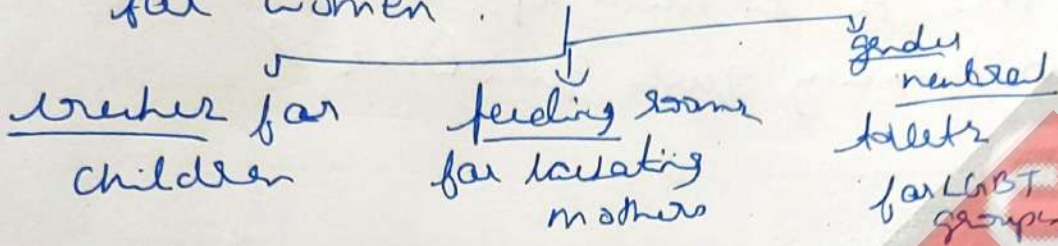 for women.
creches for
children
feeding rooms
for lactating
mothers
gender
neutral
toilets
for LGBT
groups